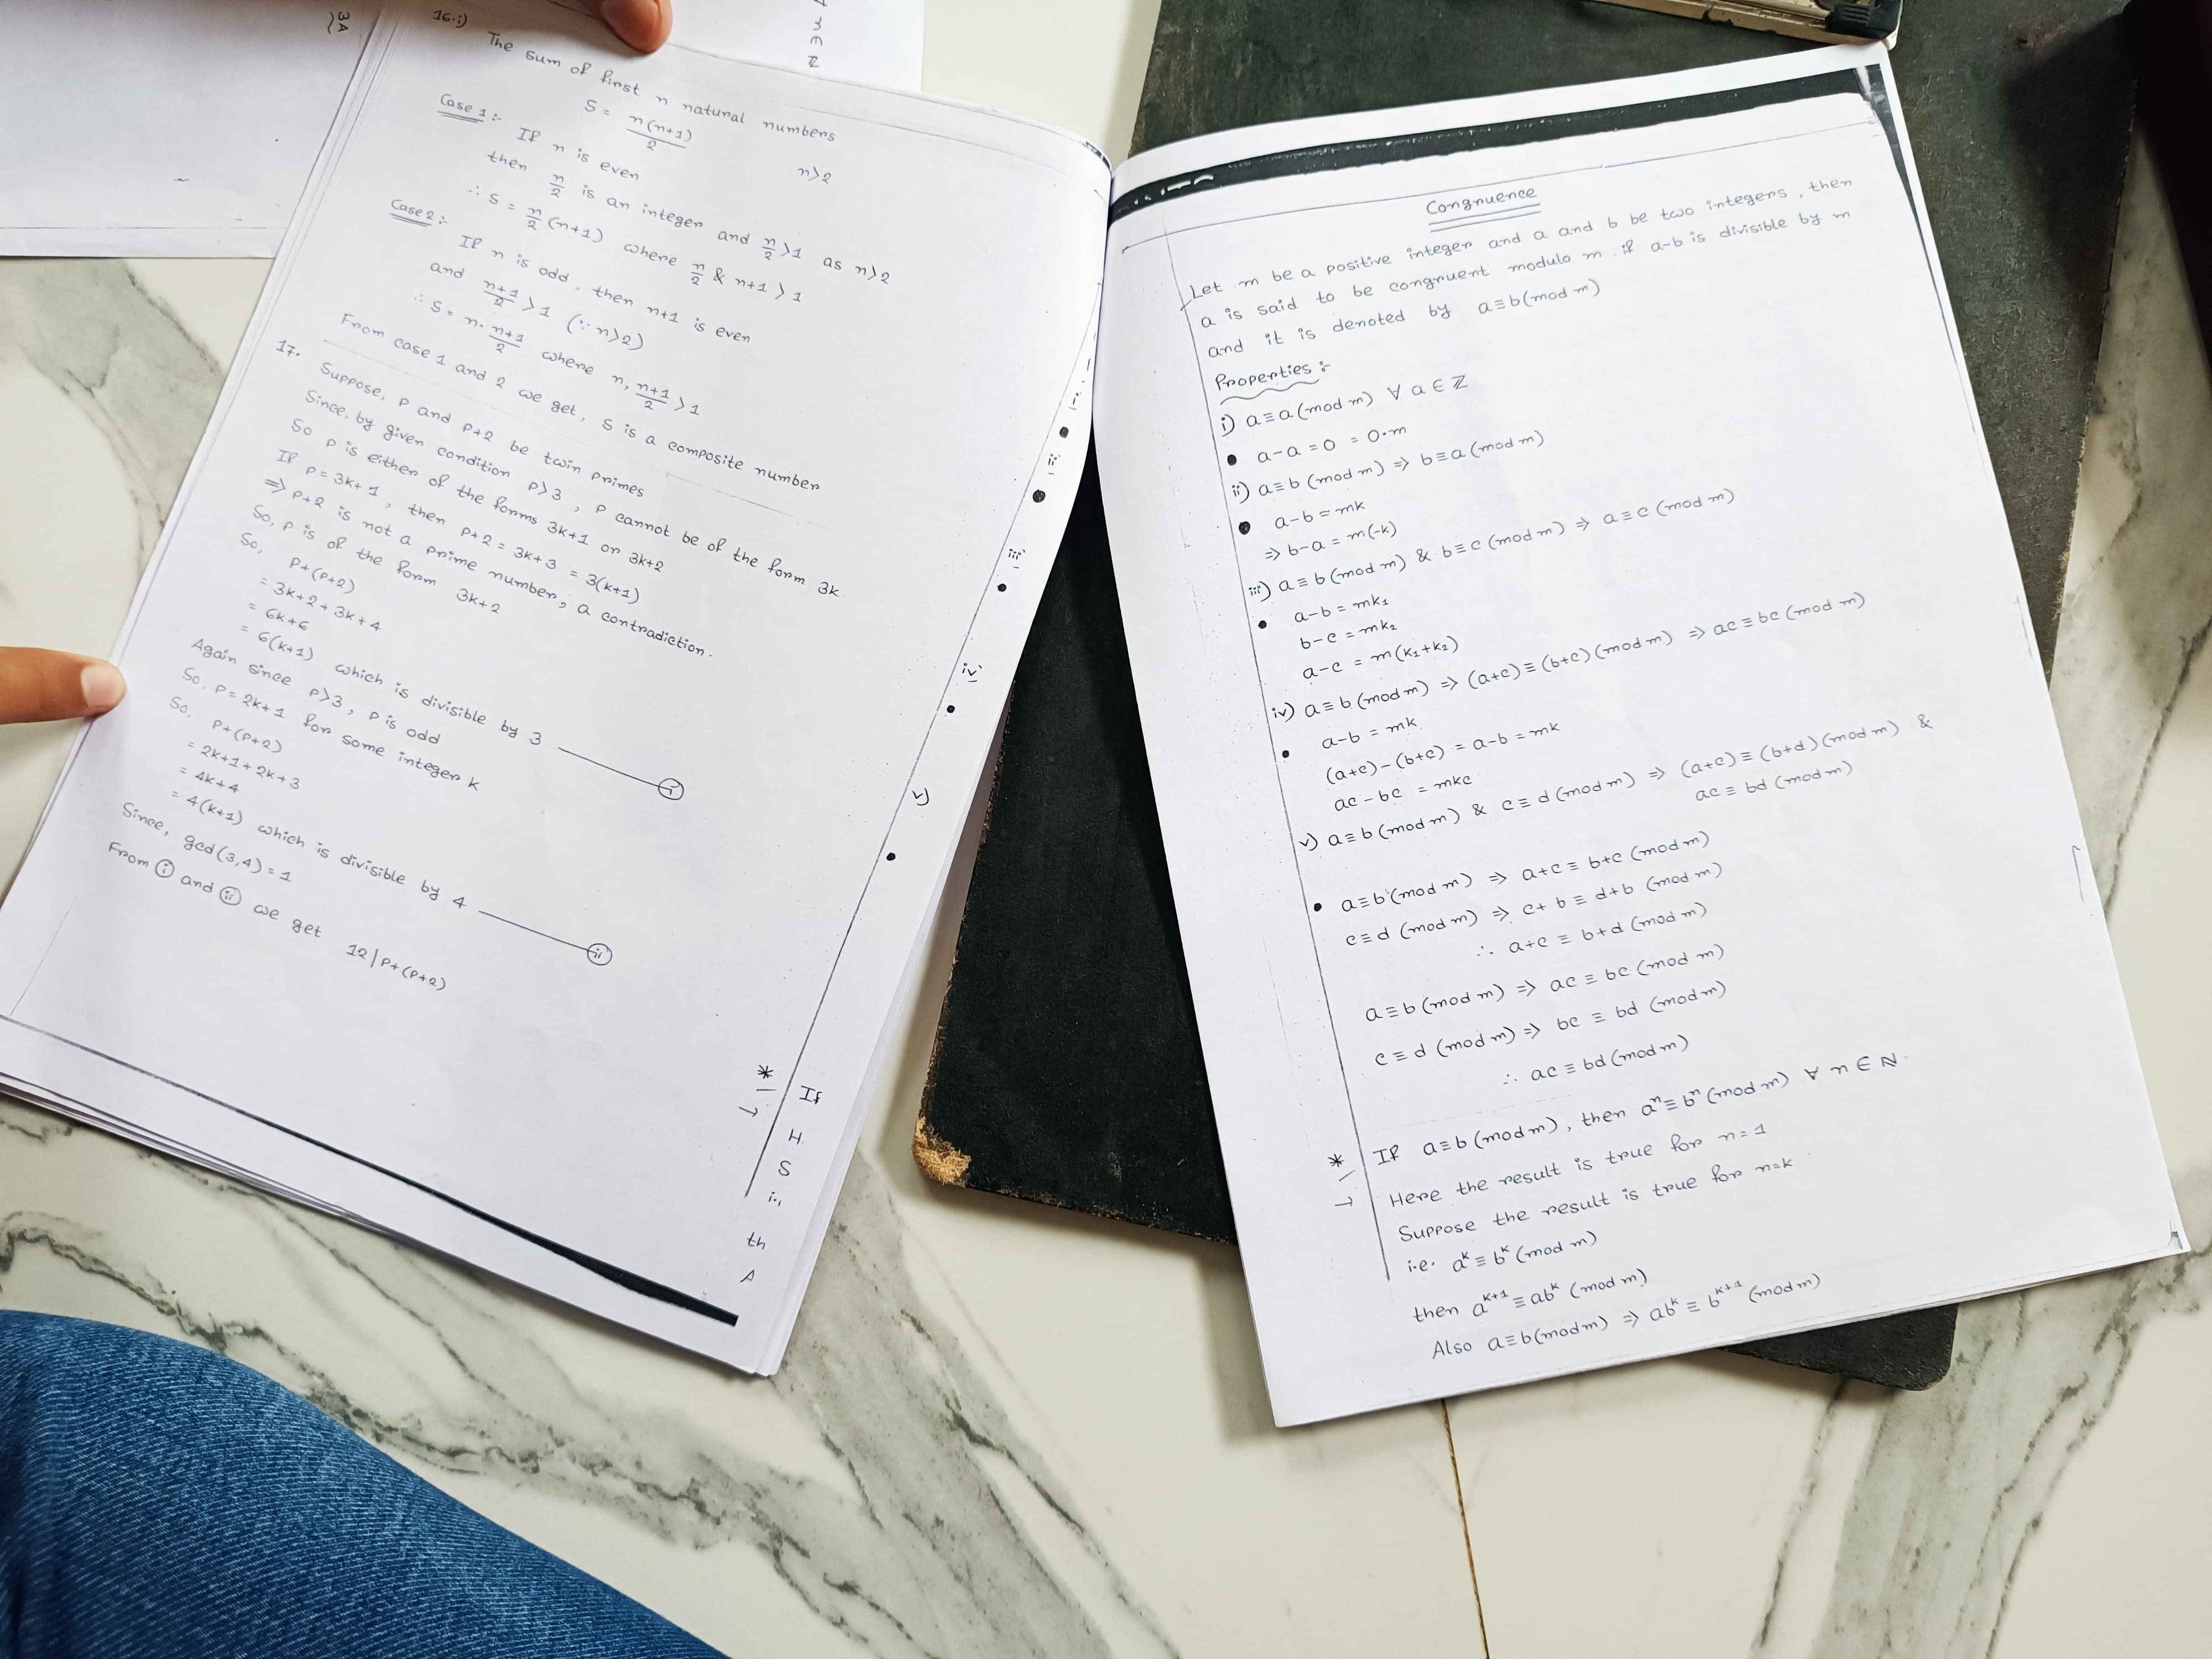 16.i) The sum of first n natural numbers
S = n(n+1)/2 n>2
Case 1:- If n is even
then n/2 is an integer and n/2 >1 as n>2
∴ S = n/2 (n+1) where n/2 & n+1 >1
Case 2:- If n is odd, then n+1 is even
and n+1/2 >1 (∵ n>2)
∴ S = n. n+1/2 where n, n+1/2 >1
From case 1 and 2 we get, S is a composite number
17. Suppose, p and p+2 be twin primes
Since, by given condition p>3, p cannot be of the form 3k
So p is either of the forms 3k+1 or 3k+2
If p = 3k+1, then p+2 = 3k+3 = 3(k+1)
⇒ p+2 is not a prime number, a contradiction.
So, p is of the form 3k+2
So, p+(p+2)
= 3k+2+3k+4
= 6k+6
= 6(k+1) which is divisible by 3 — (i)
Again since p>3, p is odd
So, p = 2k+1 for some integer k
So, p+(p+2)
= 2k+1+2k+3
= 4k+4
= 4(k+1) which is divisible by 4 — (ii)
Since, gcd(3,4) = 1
From (i) and (ii) we get 12|p+(p+2)
i
ii
iii
iv
v)
*
→
If
H
S
i.
th
A
Congruence
Let m be a positive integer and a and b be two integers, then
a is said to be congruent modulo m if a-b is divisible by m
and it is denoted by a≡b(mod m)
Properties:-
i) a≡a(mod m) ∀ a∈ℤ
• a-a = 0 = 0.m
ii) a≡b (mod m) ⇒ b≡a (mod m)
• a-b = mk
⇒ b-a = m(-k)
iii) a≡b(mod m) & b≡c(mod m) ⇒ a≡c(mod m)
• a-b = mk₁
b-c = mk₂
a-c = m(k₁+k₂)
iv) a≡b(mod m) ⇒ (a+c)≡(b+c)(mod m) ⇒ ac≡bc(mod m)
• a-b = mk
(a+c)-(b+c) = a-b = mk
ac-bc = mkc
v) a≡b(mod m) & c≡d(mod m) ⇒ (a+c)≡(b+d)(mod m) &
ac≡bd (mod m)
• a≡b(mod m) ⇒ a+c≡b+c (mod m)
c≡d (mod m) ⇒ c+b≡d+b (mod m)
∴ a+c ≡ b+d (mod m)
a≡b(mod m) ⇒ ac≡bc(mod m)
c≡d (mod m) ⇒ bc≡bd (mod m)
∴ ac≡bd(mod m)
* If a≡b(mod m), then aⁿ≡bⁿ(mod m) ∀ n∈ℕ.
→ Here the result is true for n=1
Suppose the result is true for n=k
i.e. aᵏ≡bᵏ(mod m)
then aᵏ⁺¹≡abᵏ(mod m)
Also a≡b(mod m) ⇒ abᵏ≡bᵏ⁺¹(mod m)